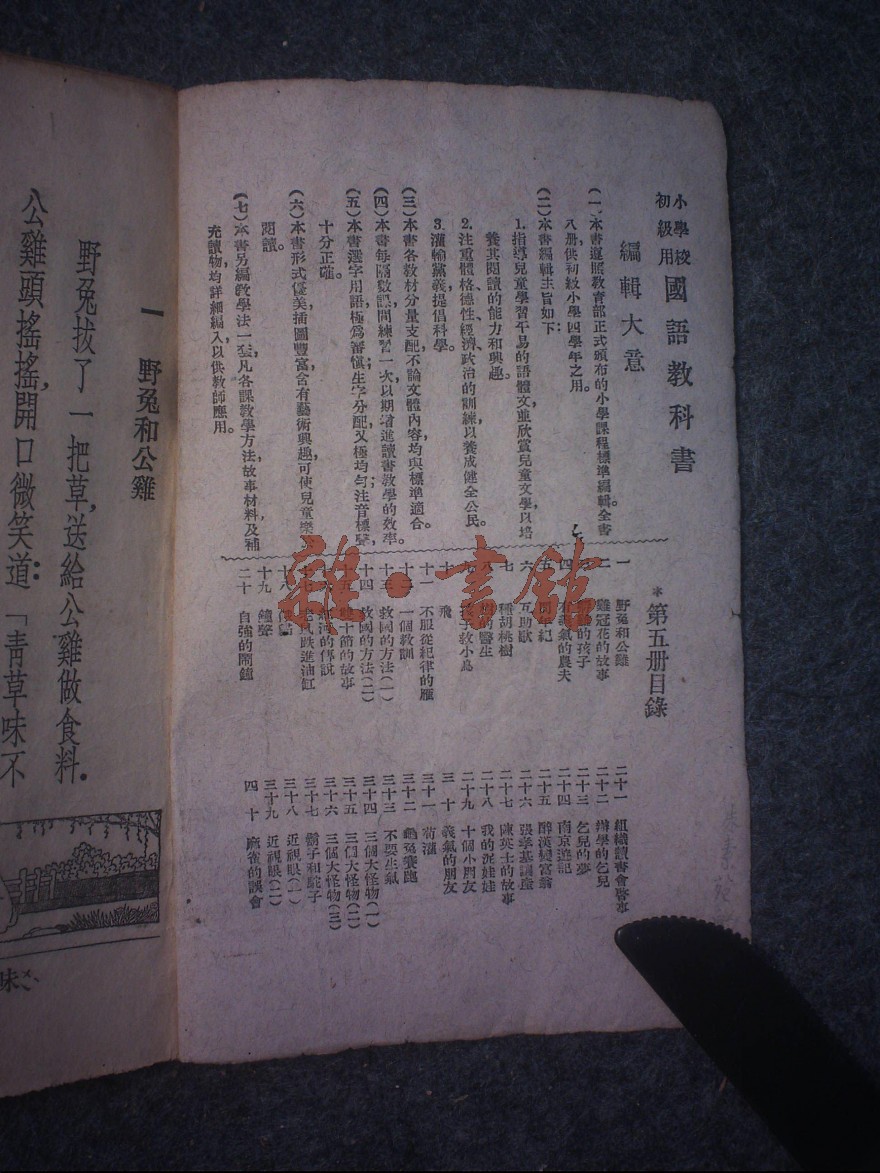 小學校
初級用
國語教科書
編輯大意
(一)本書遵照教育部正式頒布的小學課程標準編輯，全書
八册，供初級小學四學年之用。
(二)本書編輯主旨如下：
1.指導兒童學習平易的語體文，並欣賞兒童文學，以培
養其閱讀的能力和興趣。
2.注重體格德性經濟政治的訓練，以養成健全公民。
3.灌輸黨義，提倡科學。
(三)本書各教材分量支配，不論文體內容，均與標準適合。
(四)本書每隔數課，間練習一次，以期增進讀書教學的效率。
(五)本書選字用語，極爲審愼；生字分配，又極均勻；注音標聲，
十分正確。
(六)本書形式優美，插圖豐富，含有藝術興趣，可使兒童樂於
閱讀。
(七)本書另編教學法一套，凡各課教學方法，故事材料及補
充讀物，均詳細編入，以供教師應用。
*第五册目錄
一 野兔和公雞
二 雞冠花的故事
的孩子
四 氣的農夫
五 紀
六 互助歌
七 種胡桃樹
八 醫生
救小鳥
十 飛
十一 不服從紀律的雁
十二 一個教訓
十三 救國的方法(一)
十四 救國的方法(二)
十五 雙十節的故事
的傳說
跌進油缸
十八
十九 鐘聲
二十 自強的鬧鐘
二十一 組織讀書會啓事
二十二 辦學的乞兒
二十三 乞兒的夢
二十四 南京遊記
二十五 醉漢變富翁
二十六 張季基
二十七 陳英士的故事
二十八 我的泥娃娃
二十九 十個小朋友
三十 義氣的朋友
三十一 荀灌
三十二 龜兔賽跑
三十三 不要生氣
三十四 三個大怪物(一)
三十五 三個大怪物(二)
三十六 三個大怪物(三)
三十七 鬍子和駝子
三十八 近視眼(一)
三十九 近視眼(二)
四十 麻雀的誤會
一 野兔和公雞
野兔拔了一把草，送給公雞做食料。
公雞頭搖搖，開口微笑道：「青草味不
味
雜·書館